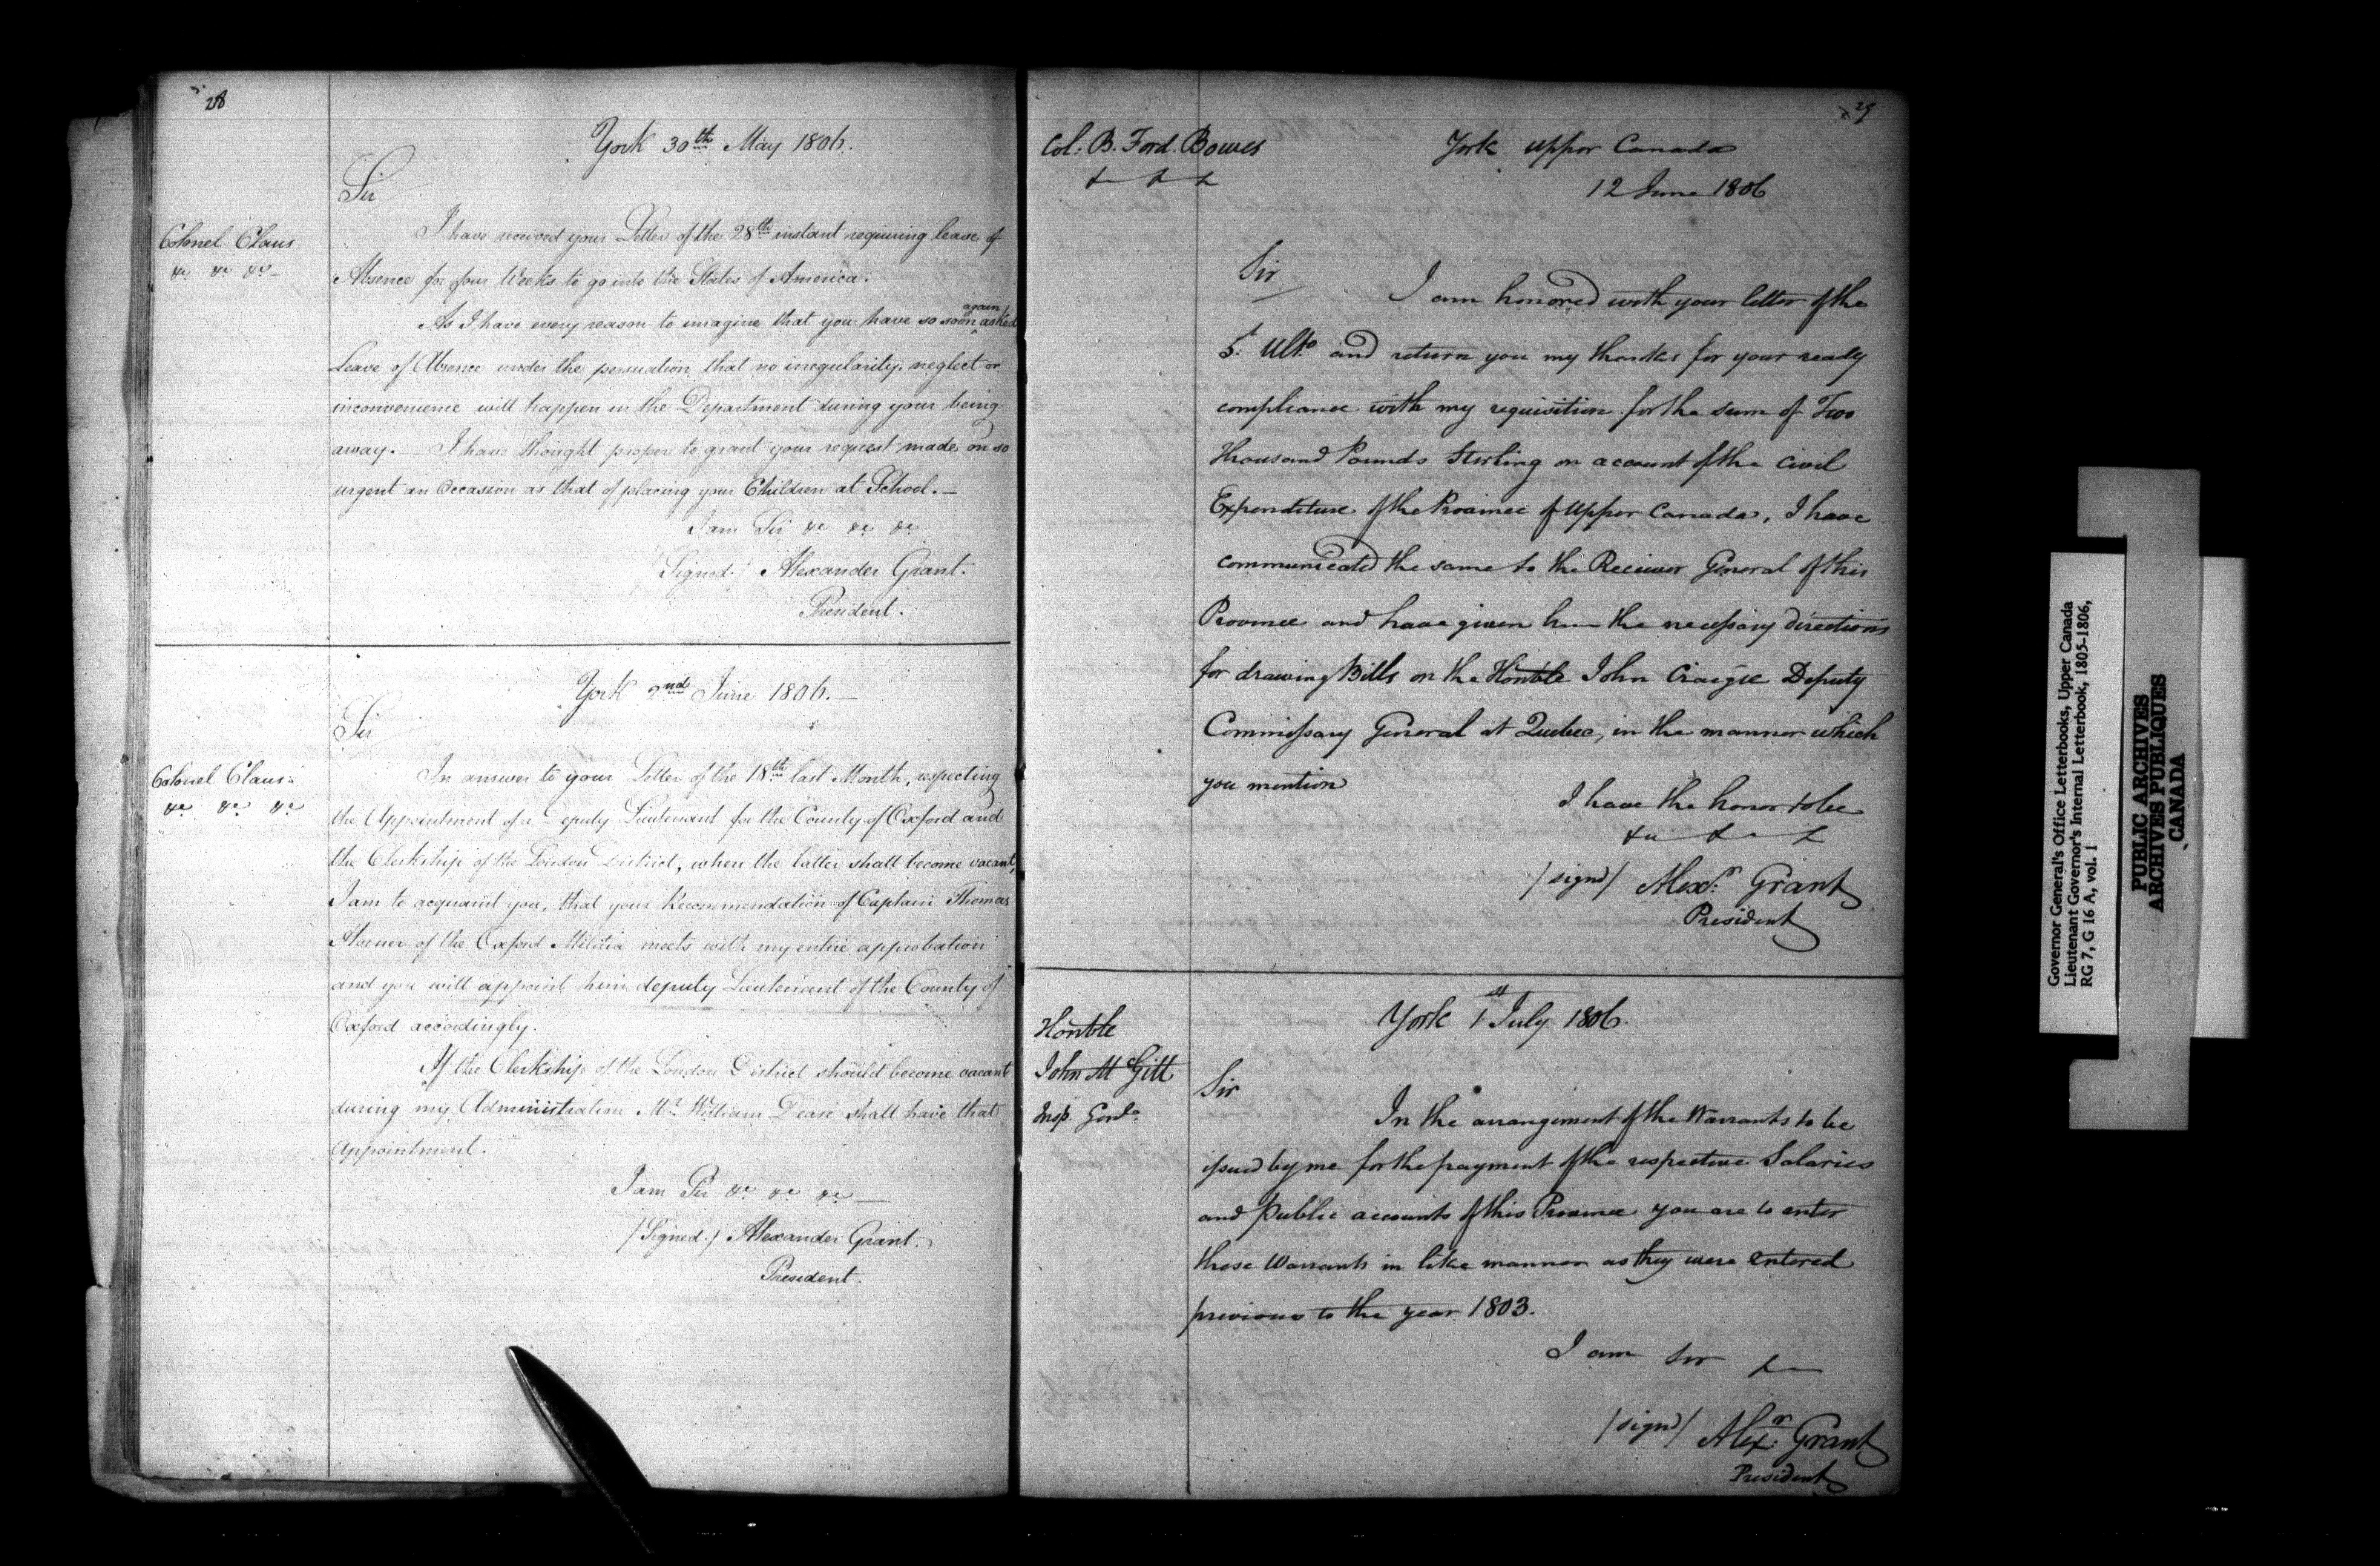 28
York 30th May 1806.
Sir
Colonel Claus
&c. &c. &c. —
I have received your Letter of the 28th instant requiring leave of
Absence for four Weeks to go into the States of America.
again
As I have every reason to imagine that you have so soon ^ asked
Leave of Absence under the persuation that no irregularity, neglect or
inconvenience will happen in the Department during your being
away. — I have thought proper to grant your request made on so
urgent an Occasion as that of placing your Children at School. —
I am Sir &c &c &c.
/Signed./ Alexander Grant.
President.
York 2nd June 1806. —
Sir
Colonel Claus.
&c &c &c
In answer to your Letter of the 18th last Month, respecting
the Appointment of a Deputy Lieutenant for the County of Oxford and
the Clerkship of the London District, when the latter shall become vacant,
I am to acquaint you, that your Recommendation of Captain Thomas
Horner of the Oxford Militia meets with my entire approbation
and you will appoint him deputy Lieutenant of the County of
Oxford accordingly.
If the Clerkship of the London District should become vacant
during my Administration Mr. William Dease shall have that
Appointment.
I am Sir &c &c &c —
/Signed./ Alexander Grant.
President.
29
Col: B. Ford. Bowes
& & &
York upper Canada
12 June 1806
Sir
I am honored with your letter of the
5t: Ulto and return you my thanks for your ready
compliance with my requisition for the sum of Two
Thousand Pounds Sterling on account of the Civil
Expenditure of the Province of Upper Canada, I have
communicated the same to the Receiver General of this
Province and have given him the necessary directions
for drawing Bills on the Honble John Craigie Deputy
Commissary General at Quebec, in the manner which
you mention
I have the honor to be
&c & &
/signd/ Alexr. Grant
President
Honble
John McGill
Insp. Genl.
York 1st July 1806.
Sir
In the arrangement of the Warrants to be
issued by me for the payment of the respective Salaries
and Public accounts of this Province you are to enter
these Warrants in like manner as they were entered
previous to the year 1803.
I am Sir &c
/signd/ Alexr. Grant
President
Governor General's Office Letterbooks, Upper Canada
Lieutenant Governor's Internal Letterbook, 1805-1806,
RG 7, G 16 A, vol. 1
PUBLIC ARCHIVES
ARCHIVES PUBLIQUES
CANADA